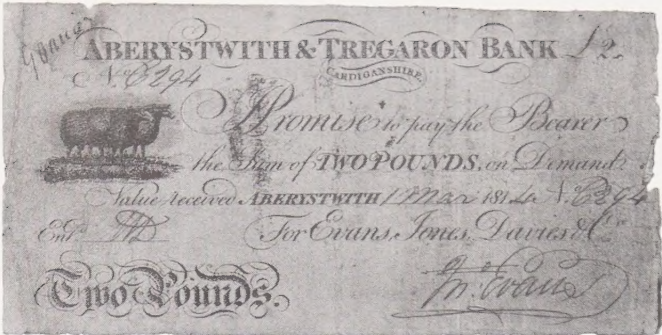 ABERYSTWITH & TREGARON BANK £2.
CARDIGANSHIRE.
No. C294
I Promise to pay the Bearer
the Sum of TWO POUNDS, on Demand
Value received ABERYSTWITH 1 Mar 1814 No. C294
Entd.
For Evans, Jones, Davies & Co.
Two Pounds.
Jn. Evans